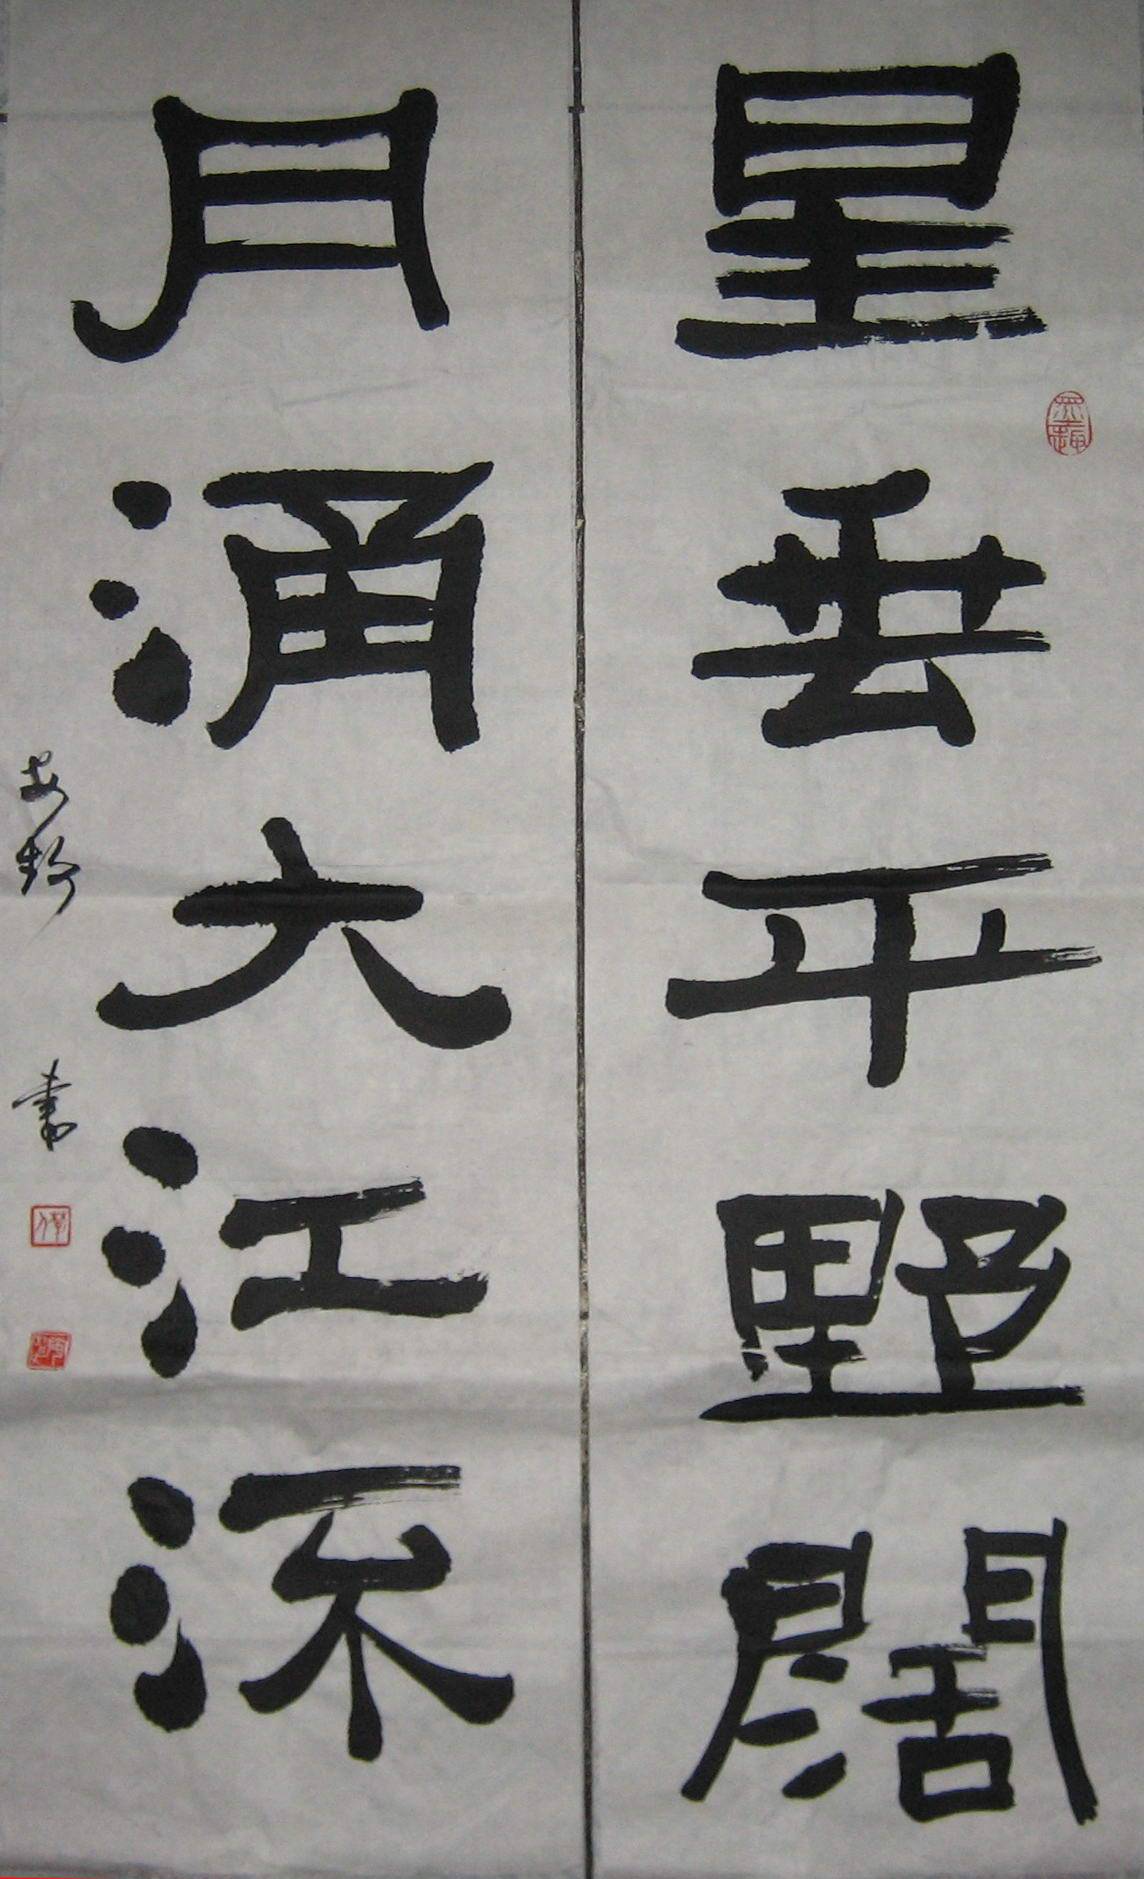 星垂平野闊
月涌大江流
書